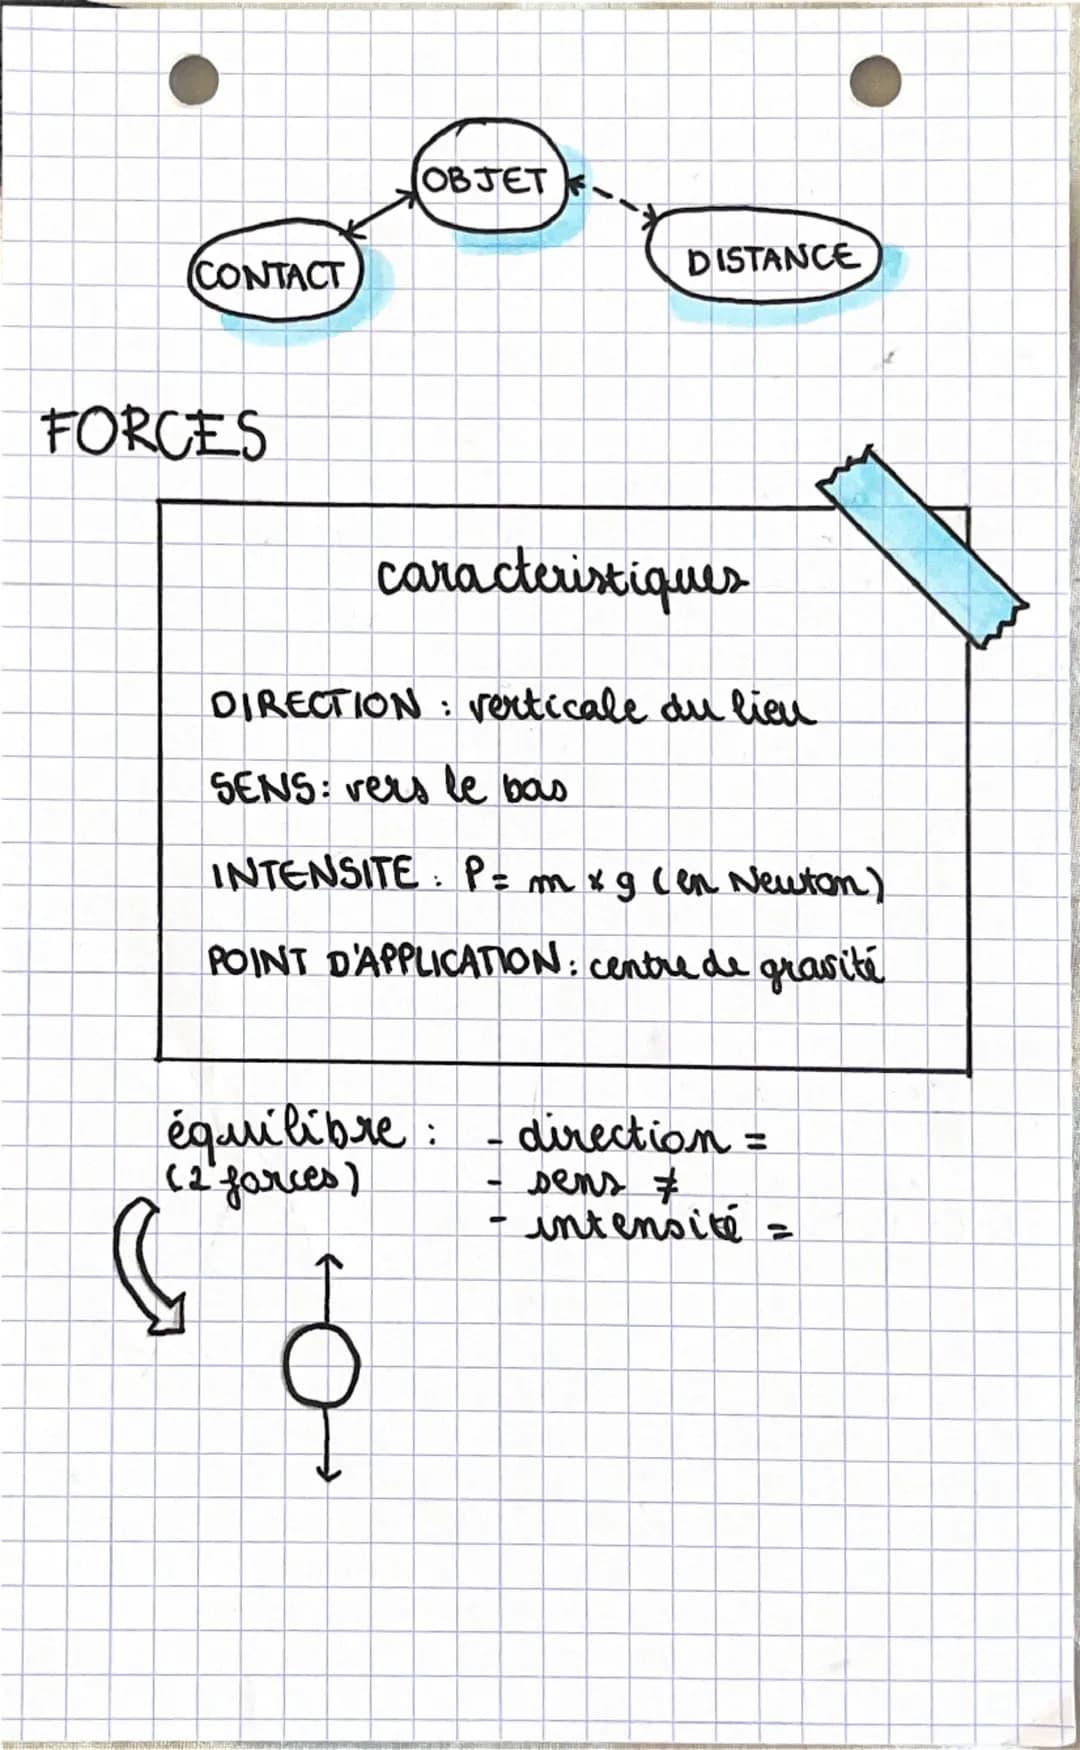 OBJET
CONTACT
DISTANCE
FORCES
caracteristiques
DIRECTION : verticale du lieu
SENS: vers le bas
INTENSITE : P = m x g (en Newton)
POINT D'APPLICATION : centre de gravité
équilibre : - direction =
(2 forces) - sens ≠
- intensité =